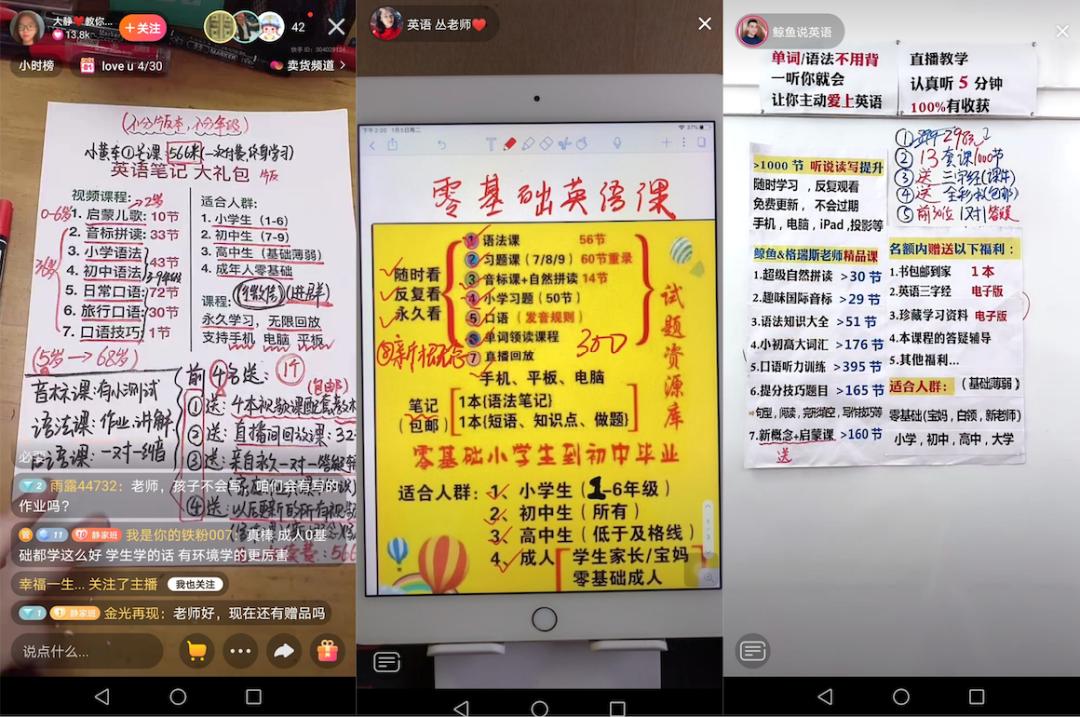 大静❤️教你...
13.8k
+关注
42
快手ID: 304028124
小时榜
love u 4/30
卖货频道
(不分版本,不分年级)
小黄车①号课:566米(一次付费,终身学习)
英语笔记 大礼包
视频课程:
1. 启蒙儿歌: 10节
2. 音标拼读: 33节
3. 小学语法
4. 初中语法
43节
5. 日常口语: 72节
6. 旅行口语: 30节
7. 口语技巧: 1节
(5岁→68岁)
适合人群:
1. 小学生 (1-6)
2. 初中生 (7-9)
3. 高中生 (基础薄弱)
4. 成年人零基础
课程:(加微信)(进群)
永久学习, 无限回放
支持手机 电脑 平板
音标课:有小测试
语法课:作业.讲解
口语课:一对一纠音
前4名送:
1个
(包邮)
①送:4本视频课配套教材
②送:直播间回放课:32
③送:亲自永久一对一答疑
④送:以后更新的所有视频
雨露44732:老师,孩子不会写,咱们会有写的作业吗?
11 静家班 我是你的铁粉007:真棒 成人0基础都学这么好 学生学的话 有环境学的更厉害
幸福一生... 关注了主播 我也关注
1 静家班 金光再现:老师好,现在还有赠品吗
说点什么...
英语 丛老师❤️
下午2:20 1月5日周二
37%
零基础英语课
随时看
反复看
永久看
① 语法课 56节
② 习题课(7/8/9) 60节重录
③ 音标课+自然拼读 14节
④ 小学习题(50节)
⑤ 口语(发音规则)
⑥ 单词领读课程
⑦ 直播回放
⑧新概念
300
试题资源库
手机、平板、电脑
笔记
(包邮)
1本{语法笔记}
1本{短语、知识点、做题}
零基础小学生到初中毕业
适合人群:1、小学生(1-6年级)
2、初中生(所有)
3、高中生(低于及格线)
4、成人 学生家长/宝妈
零基础成人
鲸鱼说英语
单词/语法不用背
一听你就会
让你主动爱上英语
直播教学
认真听 5 分钟
100%有收获
>1000 节 听说读写提升
随时学习,反复观看
免费更新, 不会过期
手机,电脑,iPad,投影等
② 13套课1000节
③ 送 三字经(课件)
④ 送 全彩书(包邮)
⑤ 前30位 1对1答疑
鲸鱼&格瑞斯老师精品课
1.超级自然拼读 >30 节
2.趣味国际音标 >29 节
3.语法知识大全 >51 节
4.小初高大词汇 >176 节
5.口语听力训练 >395 节
6.提分技巧题目 >165 节
句型,阅读,完形填空,写作技巧等
7.新概念+启蒙课 >160 节
送
名额内赠送以下福利:
1.书包邮到家 1 本
2.英语三字经 电子版
3.珍藏学习资料 电子版
4.本课程的答疑辅导
5.其他福利...
适合人群: (基础薄弱)
零基础(宝妈,白领,新老师)
小学,初中,高中,大学